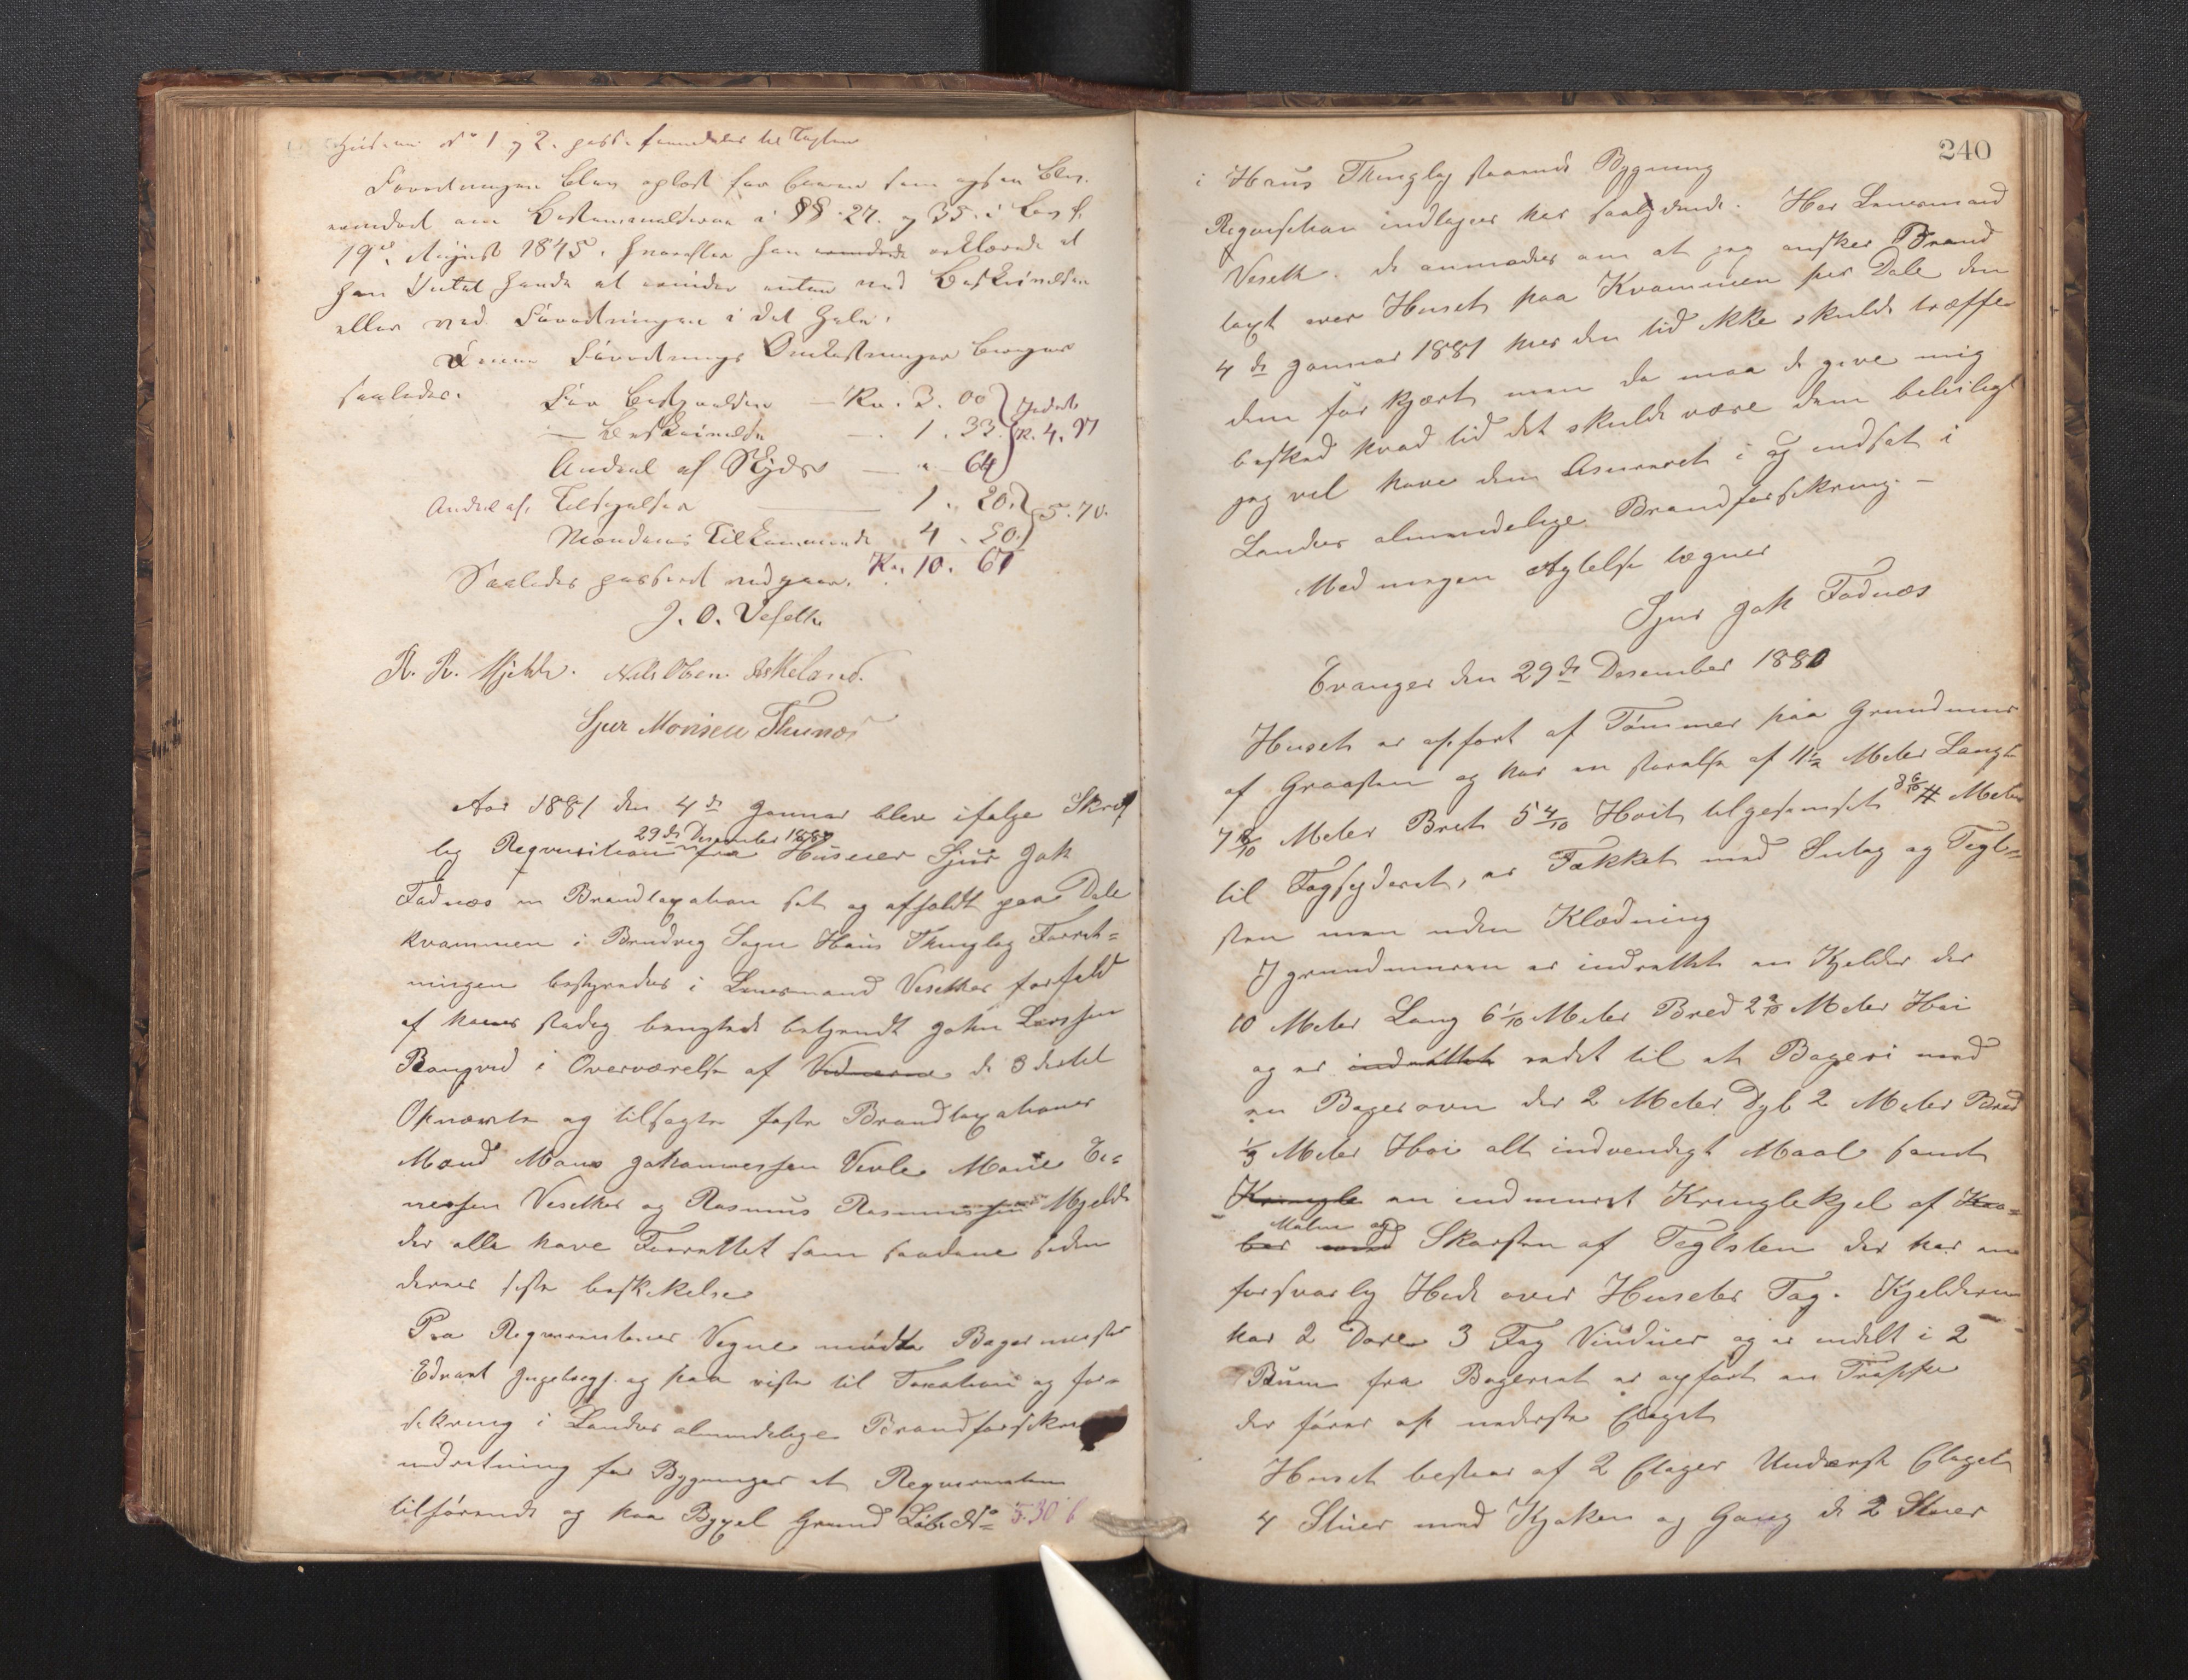 Husene No 1 og 2.
Forretningen blev oplæst for Eieren som ogsaa blev
mindet om Bestemmelserne i §§ 27. og 35. i Lov f.
19de August 1845, hvorefter han erklærede at
han Intet havde at erindre enten ved Beskrivelsen
eller ved Forretningen i det Hele.
Denne Forretnings Omkostninger beregnes
saaledes:
For Bestyrelsen — Kr. 3. 00
— Beskrivelsen — . 1. 33. Kr. 4. 97
Andeel af Skyds — " 64
Andeel af Tilsigelsen — 1. 20. 5.70.
Mændenes Tilkommende 4. 50.
Saaledes passeret vedgaaes. Kr. 10. 67
J. O. Veseth
R. R. Mjelde. Nils Olsen Askeland.
Sjur Monsen Fhunæs
Aar 1881 den 4de Januar blev ifølge Skrift
29de Desember 1880
lig Reqvisition fra Huseier Sjur Jak
Fadnæs en Brandtaxation sat og afholdt paa Dale
kvammen i Brudvig Sogn Haus Thinglag Forret-
ningen bestyredes i Lensmand Veseths forfald
af hans stadig betjendt John Larssen
i Overværelse af Vidnerne de 3 dertil
Opnævnte og tilsagte faste Brandtaxations
Mænd Mons Johannessen Vevle Mons Ei-
nersen Veseth og Rasmus Rasmussen Mjelde
der alle have Forrettet som saadane siden
deres siste beskikelse
Paa Reqvirentens Vegne mødte Bagermester
Edvart Ingebregt. og paa viste til Taxation og for-
sikring i Landets almindelige Brandforsikrings
indretning for Bygninger et Reqvirenten
tilhørende og paa Bygsel Grund Løbe No 530 b
240
i Haus Thinglag staaende Bygning
Reqvisition indtages her saalydende. Her Lensmand
Veseth. De anmodes om at jeg ønsker Brand
taxt over Huset paa Kvammen per Dale den
4de Januar 1881 hvis den tid ikke skulde træffe
dem før kjært men da maa de give mig
besked hvad tid det skulde være dem beleiligt
jeg vil have dem Asureret i og indsat i
Landets almindelige Brandforsikring. —
Med megen Agtelse tegner
Sjur Jak Fadnæs
Evanger den 29de Desember 1880
Huset er opført af Tømmer paa Grundmur
af Graasten og har en størelse af 11½ Meter Langt
7 8/10 Meter Bret 5 4/10 Høit Meter
til Tagskjæret, er Tækket med Sutag og Tegl-
sten men uden Klædning
I grundmuren er indrettet en Kjelder der
10 Meter Lang 6 1/10 Meter Bred 2 2/10 Meter Høi
og er indrettet til et Bageri med
en Bagerovn der 2 Meter Dyb 2 Meter Bred
⅓ Meter Høi alt indvendigt Maal samt
Kringle en indmuret Kringlekjel af Kob-
Malm og
ber med Skorsten af Teglsten der har en
forsvarlig Høide over Husets Tag. Kjelderen
har 2 Døre 3 Fag Vinduer og er indelt i 2
Rum fra Bageriet er opført en Trappe
der fører op nederste Etaget
Huset bestaar af 2 Etager Underste Etaget
4 Stuer med Kjøken og Gang de 2 Stuer